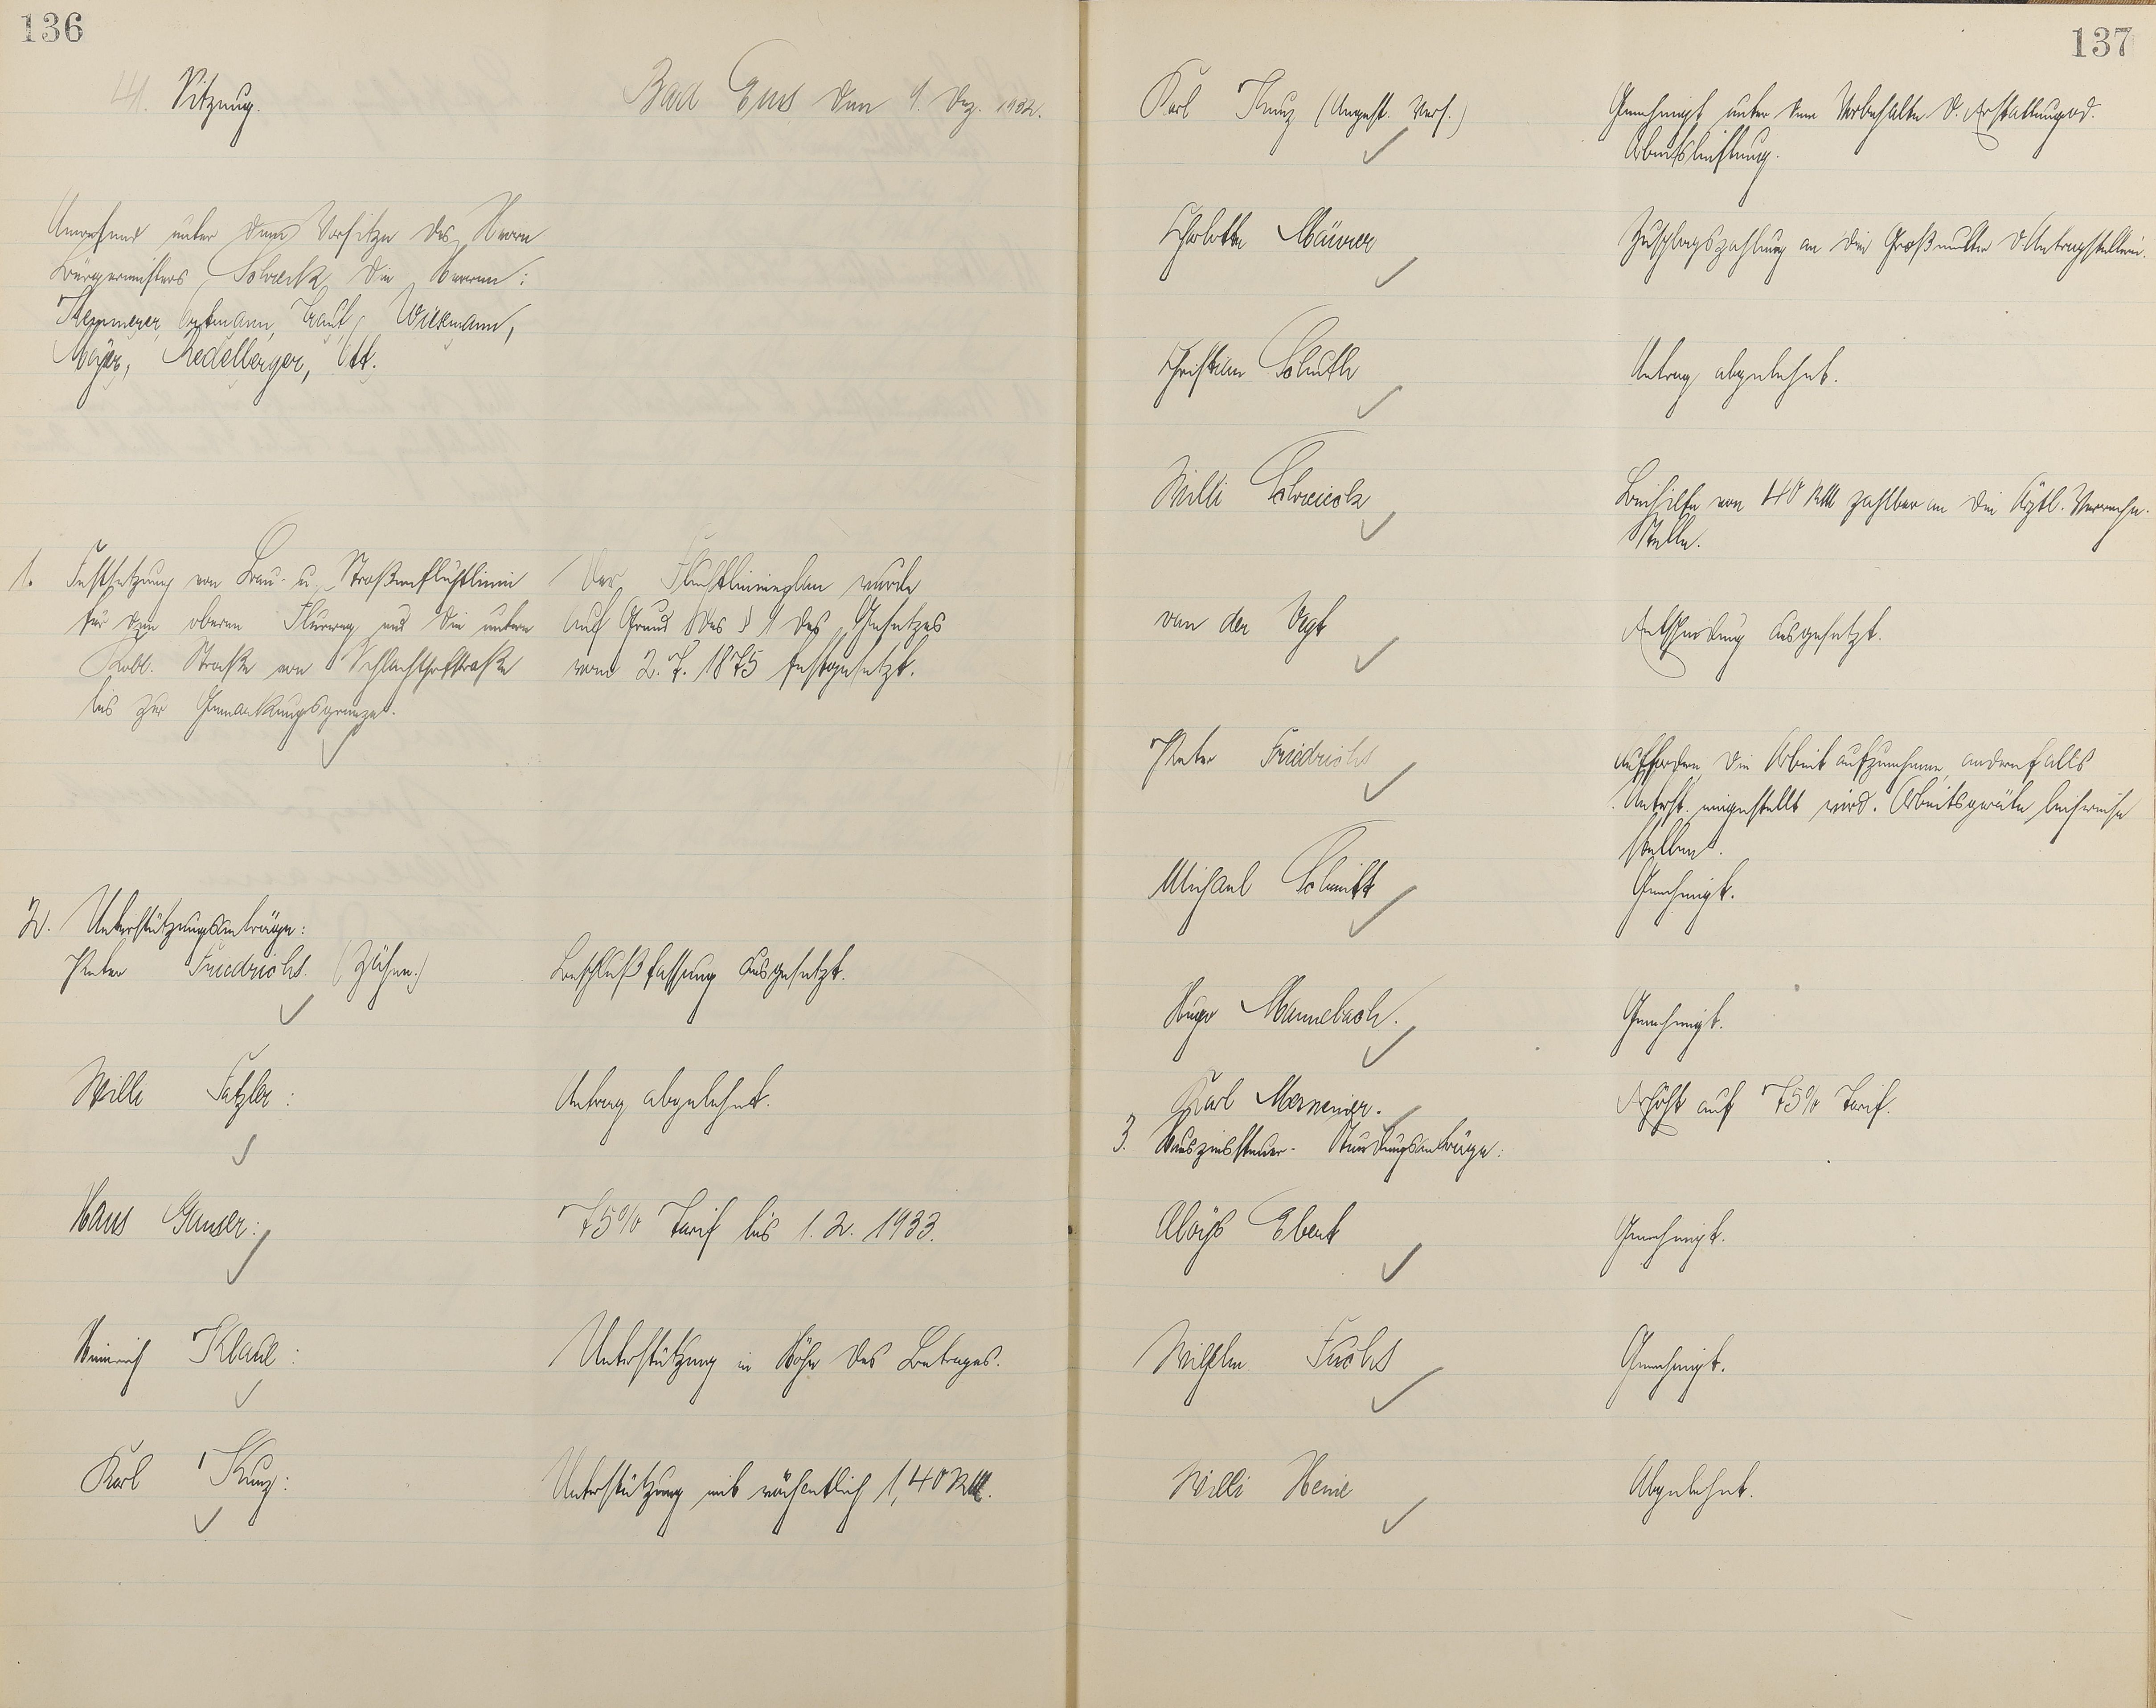 136
41. Sitzung.
Bad Ems den 9. Dez. 1932.
Anwesend unter dem Vorsitze des Herrn
Bürgermeisters Schreck, die Herren:
Kepmeyer, Ortmann, Trauf, Wiekmann,
Mayer, Redelberger, Ott.
1. Festsetzung von Bau- u. Straßenfluchtlinien
für den oberen Flurweg und die untere
Kobl. Straße von Schlachthofstraße
bis zur Gemarkungsgrenze.
Der Fluchtlinienplan wurde
auf Grund des § 1 des Gesetzes
vom 2. 7. 1875 festgesetzt.
2. Unterstützungsanträge:
Peter Friedrichs. (Zähne.)
Beschlußfassung ausgesetzt.
Willi Fatzler:
Antrag abgelehnt.
Hans Ganser:
75% Tarif bis 1. 2. 1933.
Heinrich Klaul:
Unterstützung in Höhe des Betrages.
Karl Kunz:
Unterstützung mit wöchentlich 1,40 RM.
137
Karl Kunz (Angest. Vers.)
Genehmigt unter dem Vorbehalte d. Erstattung od.
Arbeitsleistung.
Charlotte Mäurer
Zuschlagszahlung an die Großmutter d. Antragstellerin.
Christian Schuth
Antrag abgelehnt.
Willi Schreick
Beihilfe von 40 RM zahlbar an die Ärztl. Verrechn.
Stelle.
van der Vegt
Entscheidung ausgesetzt.
Peter Friedrichs
Auffordern die Arbeit aufzunehmen, andernfalls
Unterst. eingestellt wird. Arbeitsgeräte leihweise
stellen.
Michael Schmitt
Genehmigt.
Hugo Mannebach.
Genehmigt.
Karl Mernenier.
Erhöht auf 75% Tarif.
3. Hauszinssteuer-Stundungsanträge:
Aloys Ebert
Genehmigt.
Wilhelm Fuchs
Genehmigt.
Willi Heine
Abgelehnt.